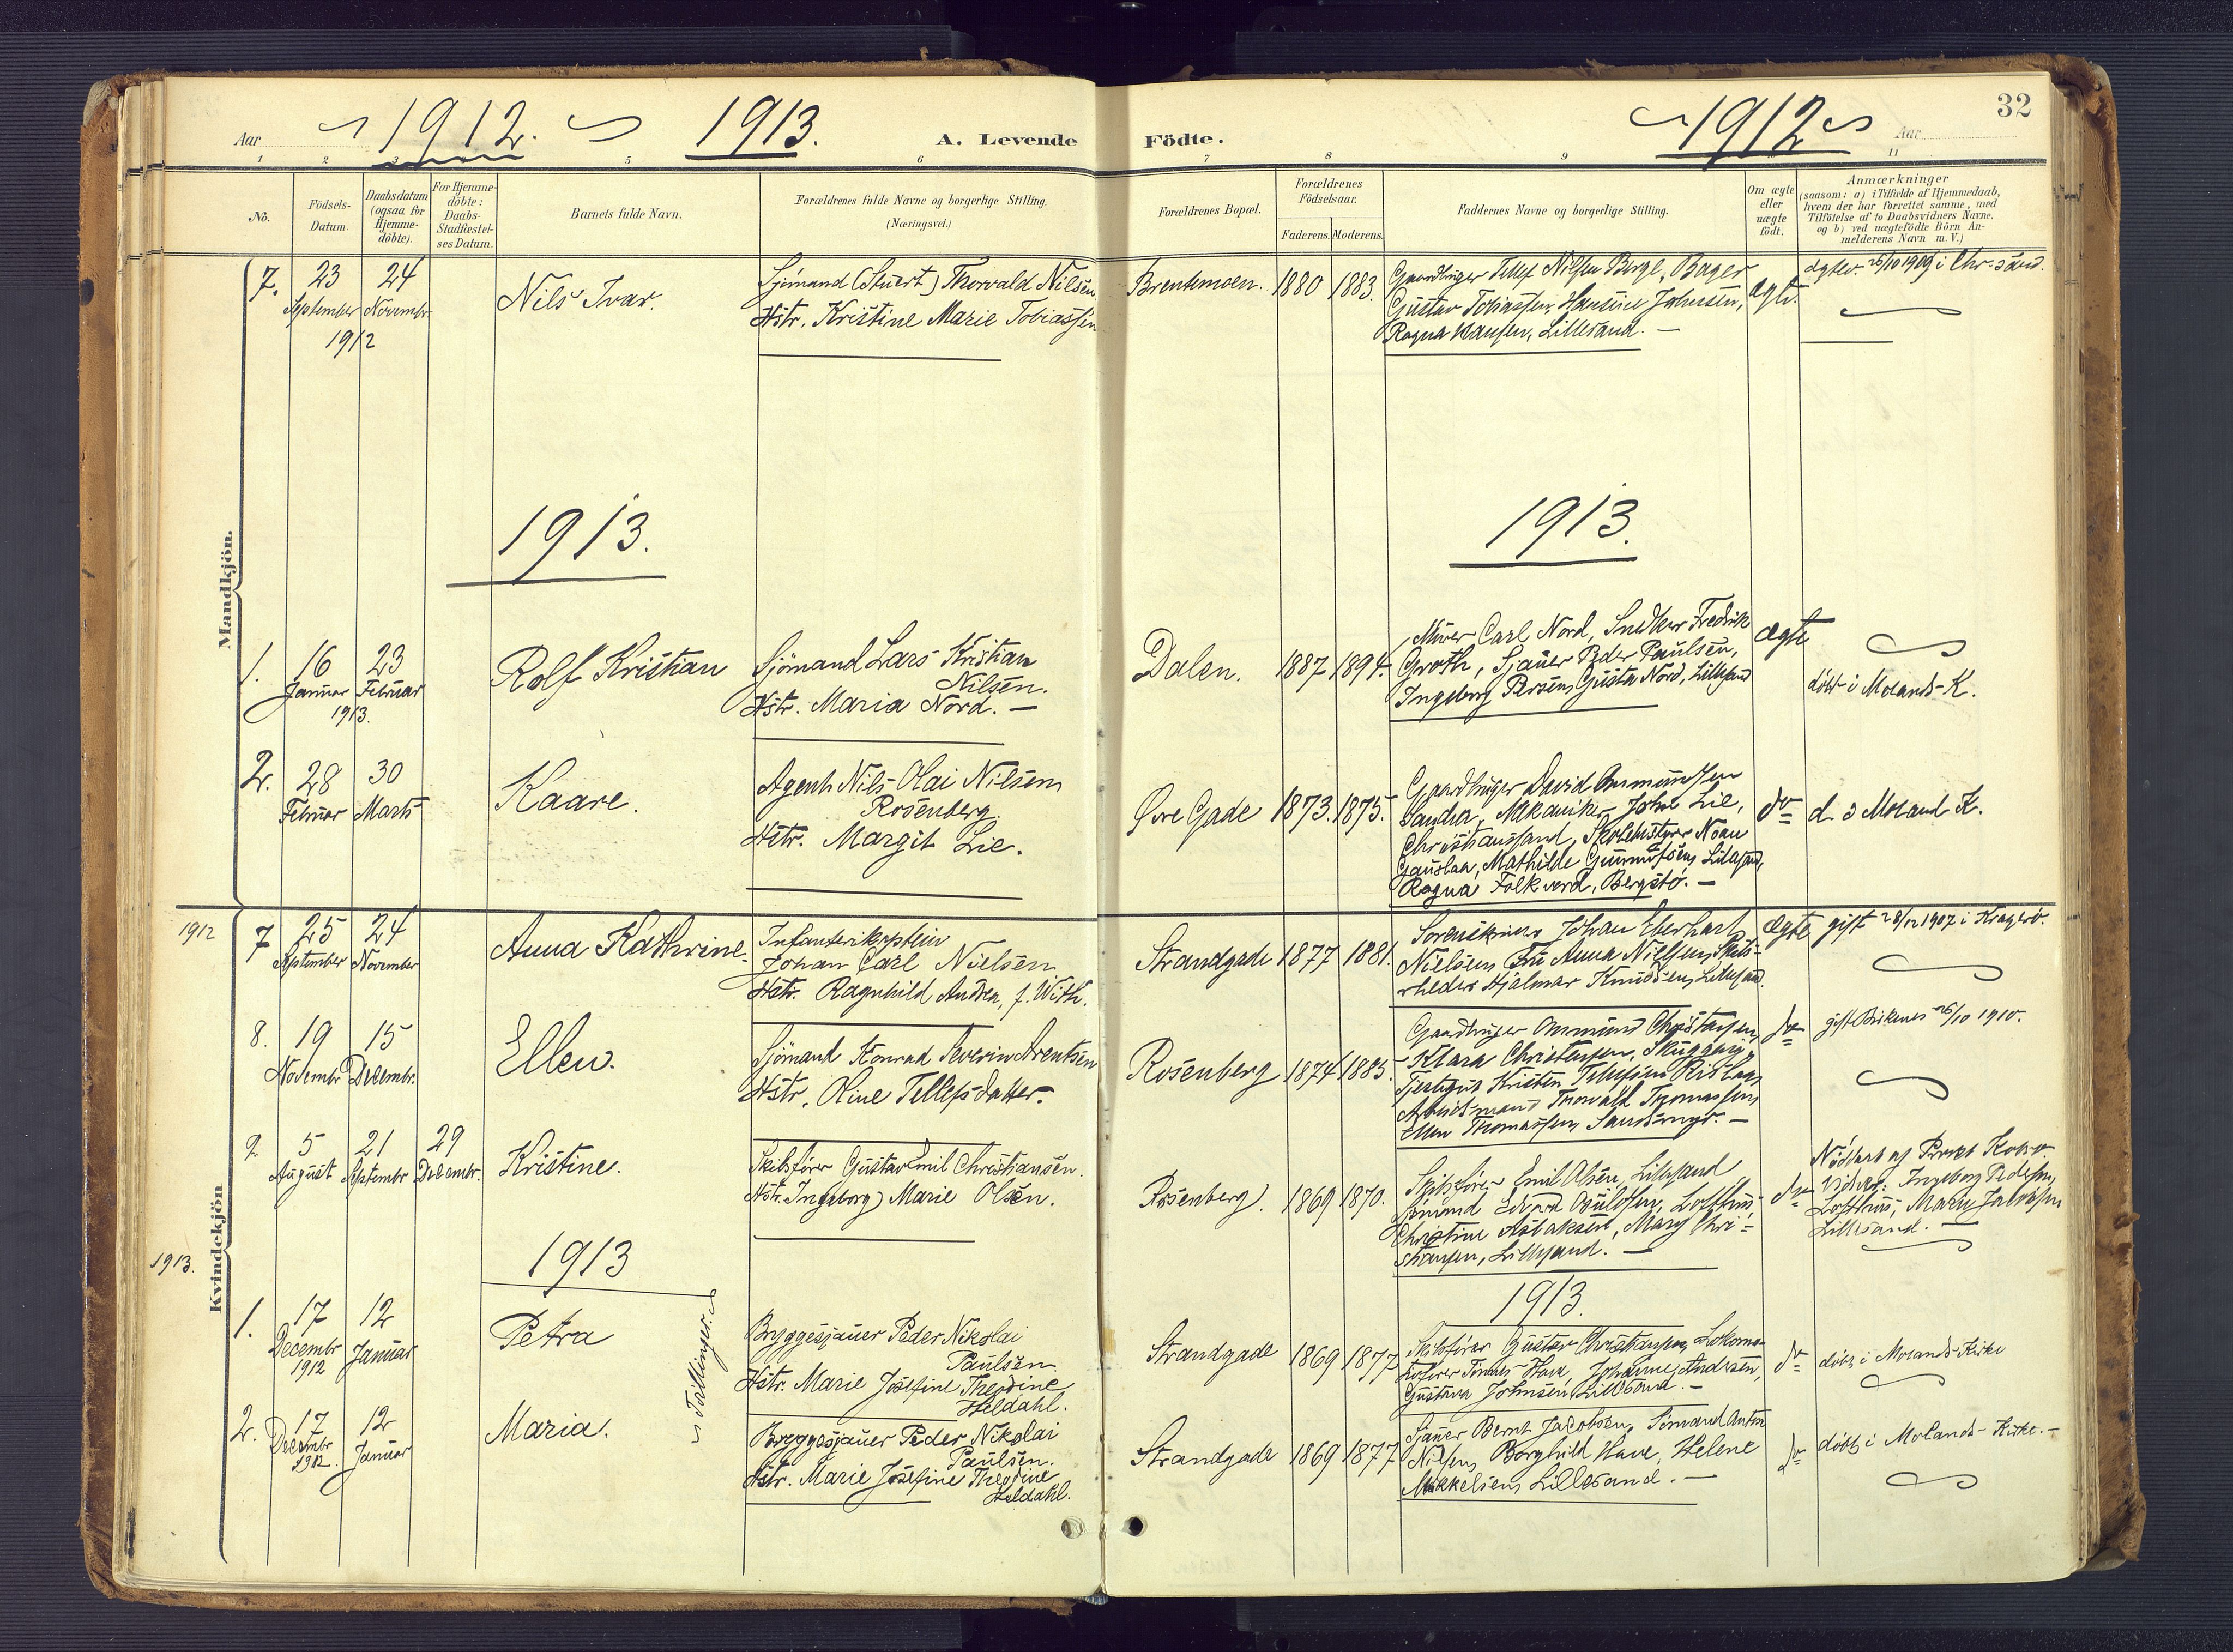 Aar 1912. 1913. A. Levende
Födte. 1912 Aar 32
1 2 3 5 6
7 8 9 11
No.
Födsels-
Datum.
Daabsdatum
(ogsaa for
Hjemme-
döbte).
For Hjemme-
döbte:
Daabs-
Stadfæstel-
ses Datum.
Barnets fulde Navn.
Forældrenes fulde Navne og borgerlige Stilling.
(Næringsvei.)
Forældrenes Bopæl.
Forældrenes
Födselsaar.
Faderens. Moderens.
Faddernes Navne og borgerlige Stilling.
Om ægte
eller
uægte
födt.
Anmærkninger
(saasom: a) i Tilfælde af Hjemmedaab,
hvem der har forrettet samme, med
Tilföielse af to Daabsvidners Navne.
og b) ved uægtefödte Börn An-
melderens Navn m. V.)
Mandkjön.
7. 23 24
September Novembr
1912
Nils Ivar.
Sjömand (Stuert) Thorvald Nilsen
Hstr. Kristine Marie Tobiassen
Brentemoen. 1880 1883.
Gaardbruger Tellef Nilsen Berge, Bager
Gustav Tobiassen, Hansine Johnsen,
Ragna Hansen, Lillesand.
ægte.
ægtev. 26/10 1909 i Chr.sand.
1913.
1913.
1. 16 23
Januar Februar
1913.
Rolf Kristian
Sjömand Lars Kristian
Nilsen.
Hstr. Maria Nord.
Dalen. 1887 1894.
Murer Carl Nord, Snedker Fredrik
Groth, Sjauer Peder Paulsen,
Ingeborg Persen, Gusta Nord, Lillesand
ægte
döbt i Molands K.
2. 28 30
Februar Marts
Kaare.
Agent Nils Olai Nilsen
Rosenberg.
Hstr. Margit Lie.
Øvre Gade 1873. 1875.
Gaardbruger David Ommundsen
Sandra, Mekaniker John Lie,
Christianssand, Skolebestyrer
Gauslaa, Mathilde Lillesand,
Ragna Folkvord, Bergstö.
do
d. i Moland K.
Kvindekjön
1912
7 25 24
September November
Anna Kathrine.
Infanterikaptein
Johan Carl Nielsen
Hstr. Ragnhild Andrea, f. With.
Strandgade 1877 1881.
Sorenskriver Johan Eberhart
Nielsen, Fru Anna Nielsen, Skibs-
rheder Hjalmar Knudsen, Lillesand
Ægte
gift 28/12 1907 i Kragerö.
8. 19 15
Novembr Decembr.
Ellen.
Sjömand Konrad Severin Arentsen
Hstr. Oline Tellefsdatter.
Rosenberg 1874 1885.
Gaardbruger Ommund Christensen,
Klara Christensen,
Kristen Tellefsen
Arbeidsmand Thorvald Thomassen,
Ellen Thomassen, Sandsmyr.
do
gift Birkenes 26/10 1910.
9 5 21 29
August Septembr Decembr.
Kristine.
Skibsförer Gustav Emil Christiansen.
Hstr. Ingeborg Marie Olsen.
Rosenberg. 1869 1870.
Skibsförer Emil Olsen, Lillesand
Sömand Edvard Lofthus,
Christine Aslaksen, Mary Chri-
stiansen, Lillesand.
do
Nöddöbt af
Vidner: Ingeborg Pedersen,
Lofthus, Mary Jakobsen
Lillesand.
1913.
1913
1913.
1. 17 12
Decembr Januar
1912
Petra
Bryggesjauer Peder Nikolai
Paulsen
Hstr. Marie Josefine Theodine
Heldahl.
Tvillinger.
Strandgade 1869 1877
Skibsförer Gustav Christiansen, Lokomo-
tivförer Tomas Have, Johanne Andersen,
Gustava Johnsen, Lillesand.
do
döbt i Molands Kirke
2. 17 12
Decembr Januar
1912.
Maria.
Bryggesjauer Peder Nikolai
Paulsen.
Hstr. Marie Josefine Theodine
Heldahl.
Strandgade 1869 1877
Sjauer Bernt Jakobsen, Sömand Anton
Nilsen, Borghild Have, Helene
Mikkelsen, Lillesand.
do
döbt i Molands Kirke.